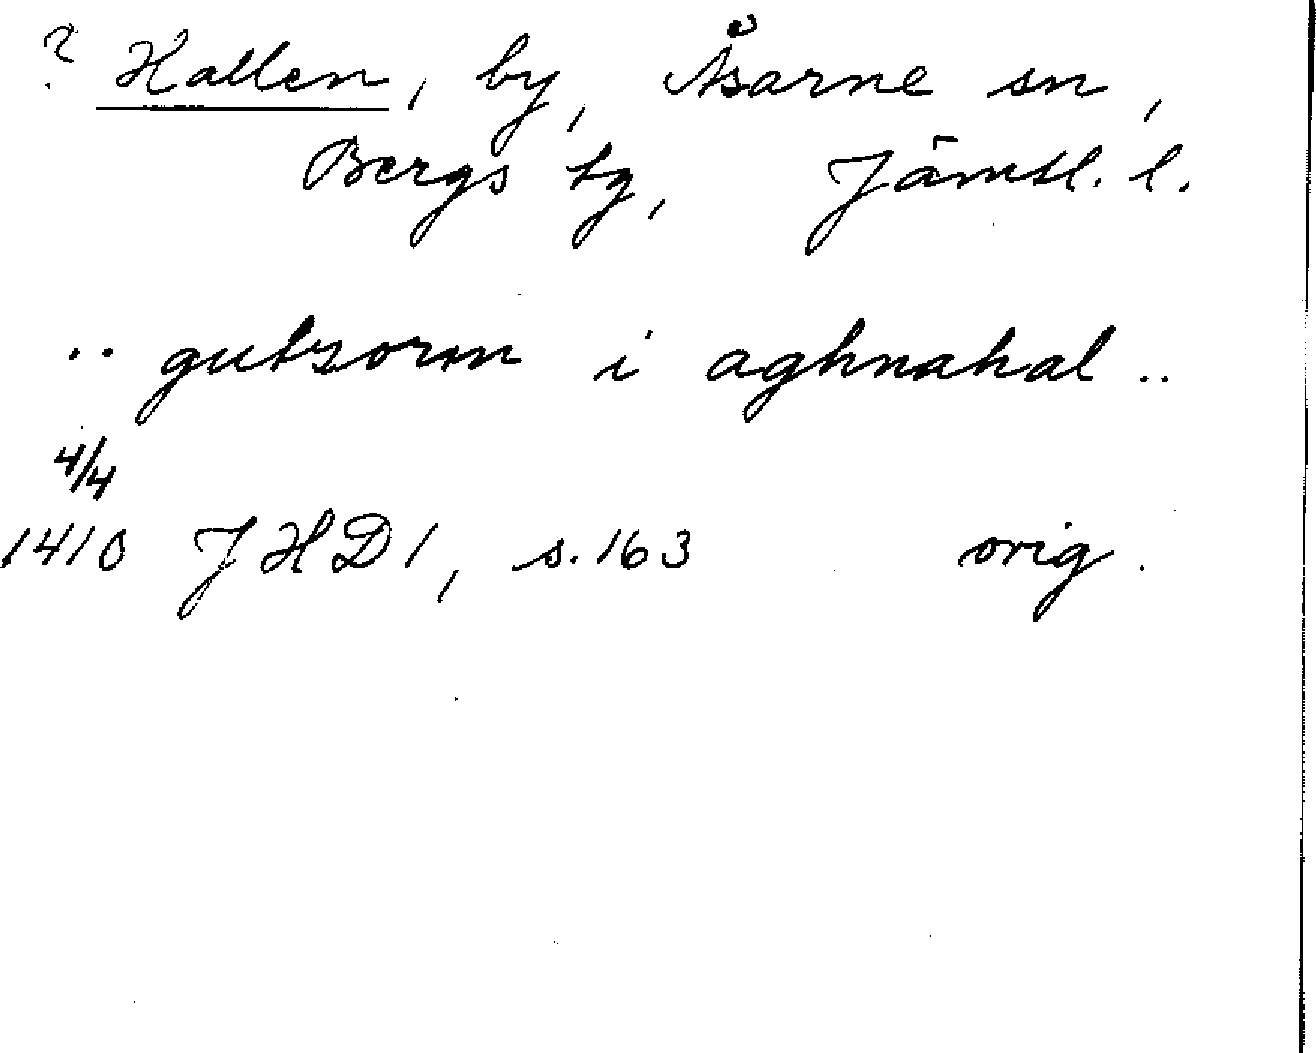 ? Hallen, by, Åsarne sn,
Bergs tg, Jämtl. l.
.. gutzorm i aghnahal ..
4/4
1410 JHD 1, s. 163 orig.